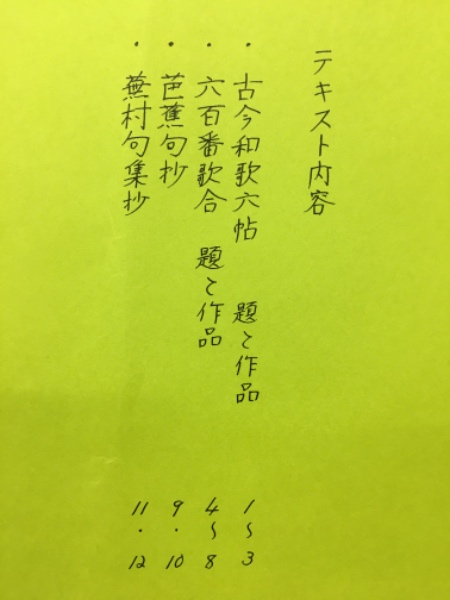 テキスト内容
・古今和歌六帖 題と作品 1〜3
・六百番歌合 題と作品 4〜8
・芭蕉句抄 9・10
・蕪村句集抄 11・12